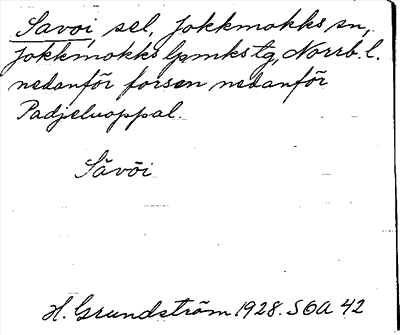 Savoi, sel, Jokkmokks sn,
Jokkmokks lpmkstg, Norrb. l.
nedanför forsen nedanför
Padjeluoppal.
Sāvōi
H. Grundström 1928. SOA 42